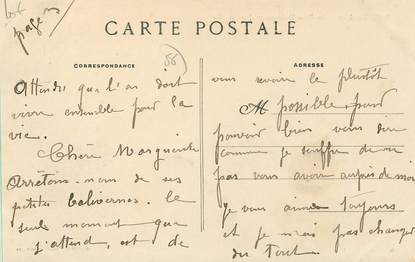 CARTE POSTALE
CORRESPONDANCE
ADRESSE
Attendu que l'on doit
vivre ensemble pour la
vie.
Chère Marguerite
Arrêtons-nous de ses
petites balivernes. le
seule moment que
j'attend, est de
vous revoir le plustôt
M possible, pour
pouvoir bien vous dire
comme je souffre de ne
pas vous avoir auprès de moi
Je vous aime toujours
et je n'ai pas changer
du tout